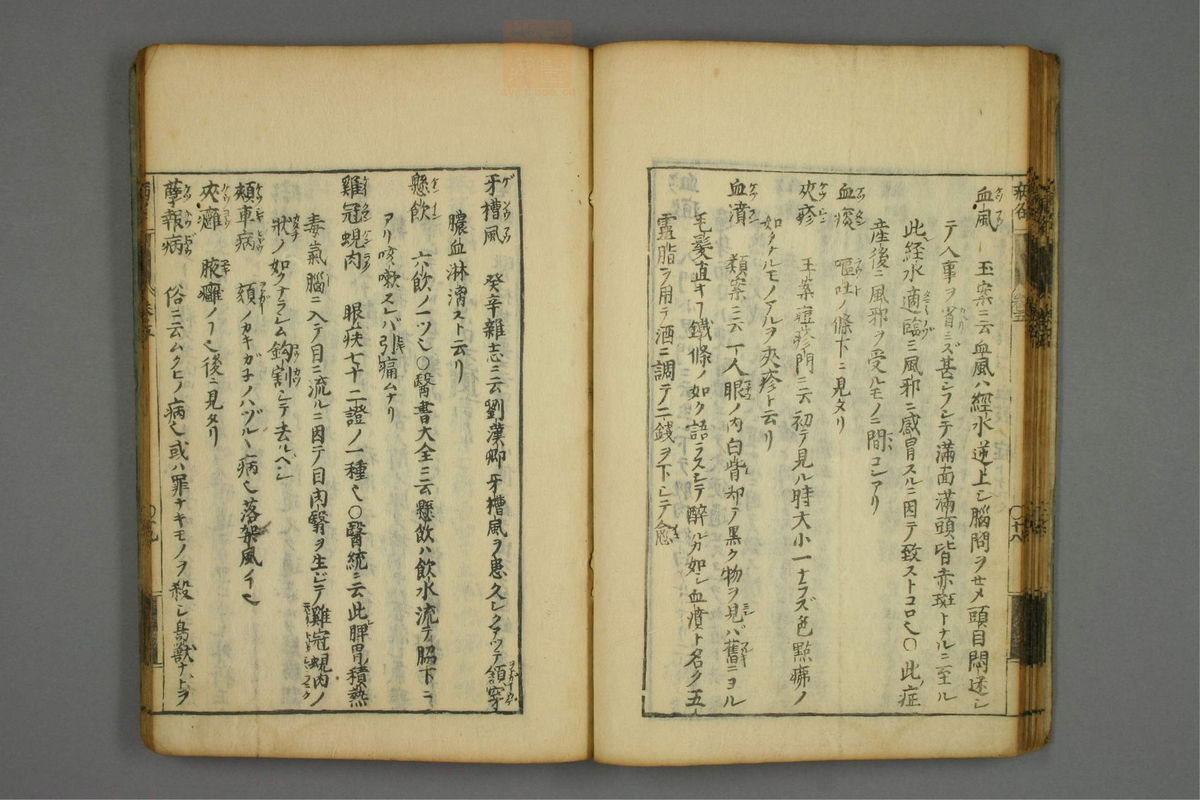 血風 玉案ニ云血風ハ經水逆上シ腦問ヲセメ頭目悶迷シ
テ人事ヲ省ミズ甚シフシテ滿面滿頭皆赤斑トナルニ至ル
此経水適臨ニ風邪ニ感冒スルニ因テ致ストコロ也○此症
産後ニ風邪ヲ受ルモノニ間コレアリ
血痰 嘔吐ノ條下ニ見タリ
夾疹 玉案痘疹門ニ云初テ見ル時大小一ナラズ色點痱ノ
如クナルモノアルヲ夾疹ト云リ
血潰 類案ニ云一人眼ノ内白眥却テ黒ク物ヲ見ハ舊ニヨル
毛髮直キフ鐵條ノ如ク語ラズシテ醉ルカ如シ血潰ト名ク五
靈脂ヲ用テ酒ニ調テ二錢ヲ下シテ愈
牙槽風 癸辛雜志ニ云劉漢卿牙槽風ヲ患久シクアツテ頷穿
膿血淋漓スト云リ
懸飲 六飲ノ一ツ也○醫書大全ニ云懸飲ハ飲水流テ脇下ニ
アリ咳嗽スレバ引痛ムナリ
雞冠蜆肉 眼疾七十二證ノ一種也○醫統ニ云此脾胃積熱
毒氣腦ニ入テ目ニ流ルニ因テ目内翳ヲ生ジテ雞冠蜆肉ノ
狀ノ如クナラシム鈎割シテ去ルベシ
頰車病 頷ノカキガネノハヅルヽ病也落架風イ也
夾癰 腋癰ノフ也後ニ見タリ
孽報病 俗ニ云ムクヒノ病也或ハ罪ナキモノヲ殺シ鳥獸ナトヲ